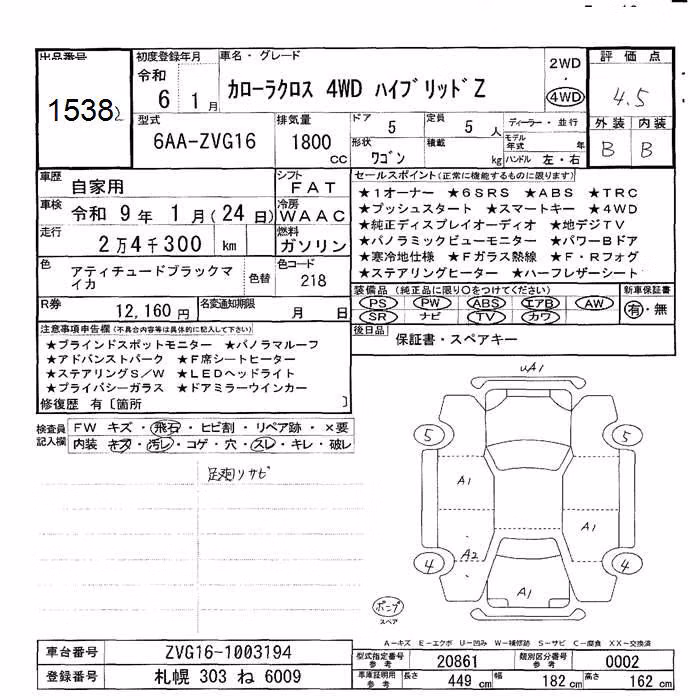 出品番号
1538
初度登録年月
令和
6 1月
車名・グレード
カローラクロス 4WD ハイブリッドZ
2WD
・
4WD
評価点
4.5
外装 内装
B B
型式
6AA-ZVG16
排気量
1800
cc
ドア
5
定員
5 人
形状
ワゴン
積載
kg
ディーラー・並行
モデル年式 年
ハンドル 左・右
車歴
自家用
シフト
FAT
車検
令和 9年 1月(24日)
冷房
WAAC
走行
2万4千300 km
燃料
ガソリン
色
アティチュードブラックマイカ
色替
色コード
218
R券
12,160円
名変通知期限
月 日
セールスポイント(正常に機能するものに限ります)
★1オーナー ★6SRS ★ABS ★TRC
★プッシュスタート ★スマートキー ★4WD
★純正ディスプレイオーディオ ★地デジTV
★パノラミックビューモニター ★パワーBドア
★寒冷地仕様 ★Fガラス熱線 ★F・Rフォグ
★ステアリングヒーター ★ハーフレザーシート
装備品(純正品に限り○をつけてください)
PS PW ABS エアB AW
SR ナビ TV カワ
新車保証書
有・無
後日品
保証書・スペアキー
注意事項申告欄(不具合内容等は具体的に記入して下さい)
★ブラインドスポットモニター ★パノラマルーフ
★アドバンストパーク ★F席シートヒーター
★ステアリングS/W ★LEDヘッドライト
★プライバシーガラス ★ドアミラーウインカー
修復歴 有〔箇所 〕
検査員記入欄
FW キズ・飛石・ヒビ割・リペア跡・×要
内装 キズ・汚レ・コゲ・穴・スレ・キレ・破レ
足廻りサビ
uA1
5 5
A1
A1
A2
4 4
A1
ポンプ
スペア
A-キズ E-エクボ U-凹み W-補修跡 S-サビ C-腐食 XX-交換済
車台番号
ZVG16-1003194
登録番号
札幌 303 ね 6009
型式指定番号
参考
20861
類別区分番号
参考
0002
車庫証明用
参考
長さ 449 cm 幅 182 cm 高さ 162 cm